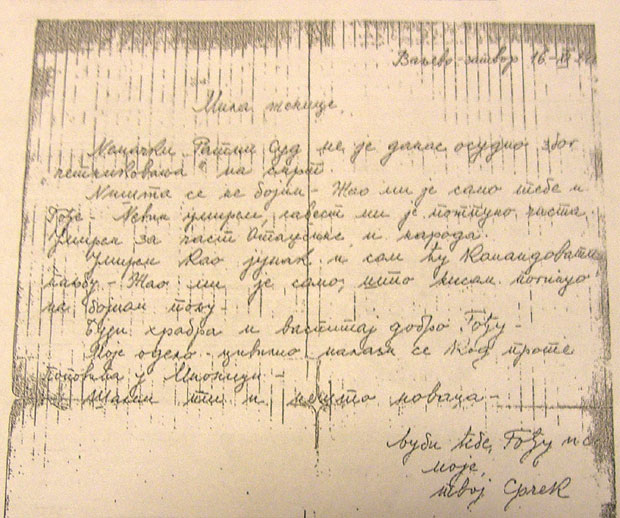 Ваљево-затвор 16-
Мила женице,
Немачки Ратни Суд ме је данас осудио због
"четниковања" на смрт.
Ништа се не бојим - Жао ми је само тебе и
Гође - Невин умирем, савест ми је потпуно чиста.
Умирем за част Отаџбине и народа.
Умирем као јунак и сам ћу командовати
паљбу - Жао ми је само, што нисам погинуо
на бојном пољу -
Буди храбра и васпитај добро Гођу -
Моје одело цивилно налази се код проте
Поповића у Мионици -
Шаљем ти и нешто новаца -
Љуби тебе, Гођу и
моје,
твој Срчек